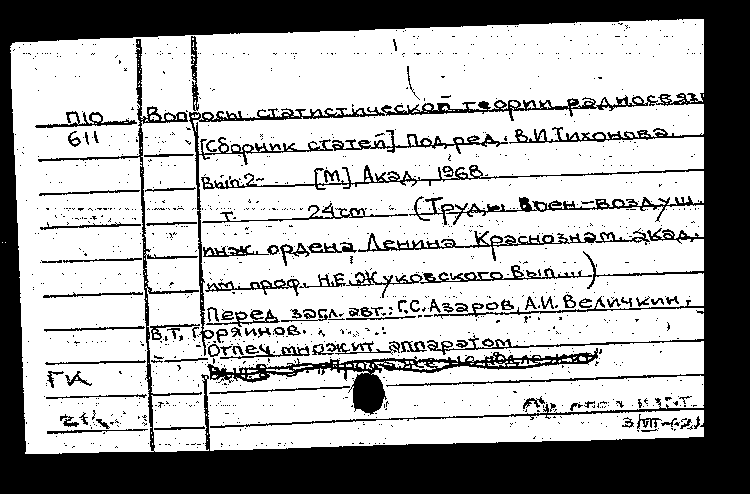 П10 Вопросы статистической теории радиосвяз
611 [Сборник статей]. Под ред. В.И.Тихонова.
Вып.2- [М.], Акад., 1968.
т. 24cm. (Труды Воен.-воздуш.
инж. ордена Ленина Краснознам. акад.
им. проф. Н.Е.Жуковского. Вып....)
Перед загл. авт.: Г.С.Азаров, А.И.Величкин,
В.Т. Горяинов.
Отпеч. множит. аппаратом.
ГК